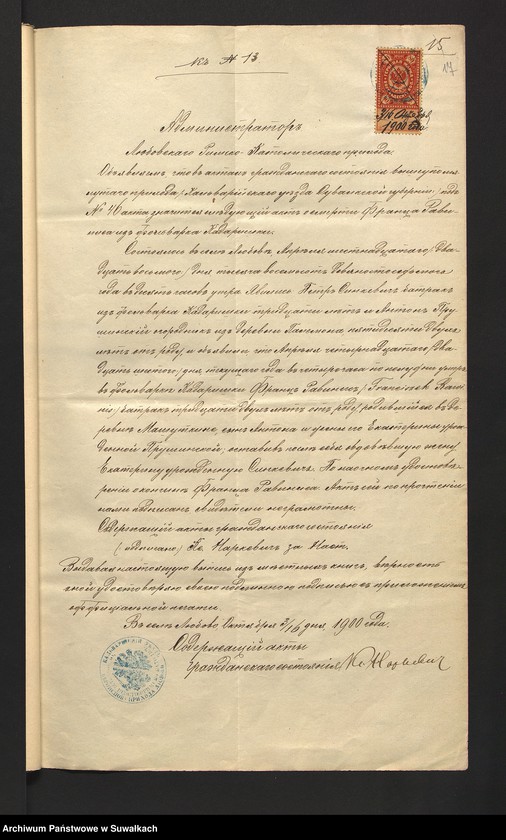 15
17
къ № 13
3/16 Октября
1900 года
Администраторъ
Любовскаго Римско-Католическаго прихода,
Объявляетъ что въ актахъ гражданскаго состоянія вышеупомя-
нутаго прихода, Кальварійскаго уѣзда Сувалкской губерніи, подъ
№ 46 акта значится слѣдующій актъ о смерти Франца Рави-
ниса изъ фольварка Кадаришки:
Состоялось въ селѣ Любовѣ, Апрѣля шестнадцатаго /два-
дцать восьмого/ дня тысяча восемьсотъ девяносто седьмого
года въ десять часовъ утра. Явились Петръ Синкевичъ батракъ
изъ фольварка Кадаришки тридцати лѣтъ и Антонъ Пру-
шинскій изъ деревни пятидесяти двухъ
лѣтъ отъ роду, и объявили что Апрѣля четырнадцатаго /два-
дцать шестого/ дня, текущаго года въ четыре часа по полудни умеръ
въ фольваркѣ Кадаришки Францъ Равинисъ /Franciszek Rawi-
nis/ батракъ тридцати двухъ лѣтъ отъ роду, родившійся въ де-
ревнѣ Машуткине, сынъ Антона и умершей Екатерины урож-
денной Прушинской, оставивъ послѣ себя овдовѣвшую жену
Екатерину урожденную Синкевичъ. По настоящемъ удостовѣ-
реніи о кончинѣ Франца Равиниса Актъ сей по прочтеніи
нами подписанъ, свидѣтели неграмотны.
Содержащій акты гражданскаго состоянія
(подписано) Кс. Наркевичъ за Наст.
Выдавая настоящую выпись изъ метныхъ книгъ, вѣрность
оной удостовѣряю своею подписью съ приложеніемъ
оффиціальной печати.
Въ селѣ Любово Октября 3/16 дня, 1900 года.
Содержащій акты
гражданскаго состоянія
Archiwum Państwowe w Suwałkach